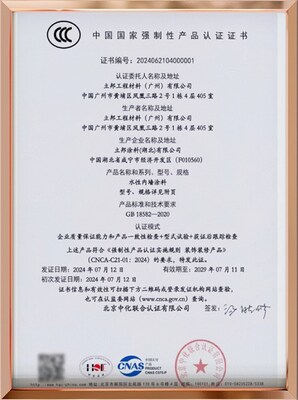 中国国家强制性产品认证证书
证书编号: 2024062104000001
认证委托人名称及地址
立邦工程材料（广州）有限公司
中国广州市黄埔区凤凰三路2号1栋4层405室
生产者名称及地址
立邦工程材料（广州）有限公司
中国广州市黄埔区凤凰三路2号1栋4层405室
生产企业名称及地址
立邦涂料(湖北)有限公司
中国湖北省咸宁市经济开发区（F010560）
产品名称和系列、型号、规格
水性内墙涂料
型号、规格详见附页
产品标准和技术要求
GB 18582—2020
认证模式
企业质量保证能力和产品一致性检查+型式试验+获证后跟踪检查
上述产品符合《强制性产品认证实施规则 装饰装修产品》
(CNCA-C21-01: 2024) 的要求，特发此证。
发证日期: 2024 年 07 月 12 日 有效期至: 2029 年 07 月 11 日
初次发证日期: 2024 年 07 月 12 日
证书信息和有效性可扫描下方二维码或登录发证机构网站查验，
也可在认监委网站（www.cnca.gov.cn）查询。
北京中化联合认证有限公司 签发：
CNAS